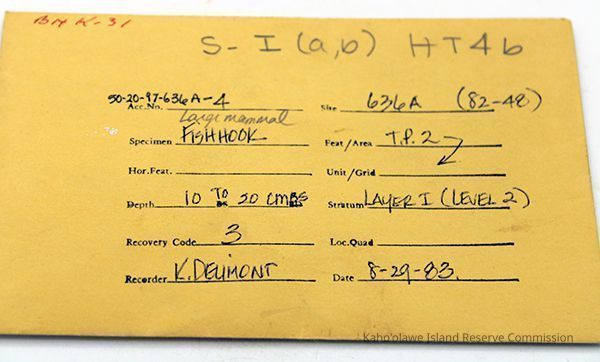 BM K-31
S-I (a,b) HT4b
50-20-97-636A-4
Acc.No. Site 636A (82-48)
Large mammal
Specimen FISHHOOK Feat/Area T.P. 2
Hor.Feat. Unit/Grid
Depth 10 TO 20 CMBS Stratum LAYER I (LEVEL 2)
Recovery Code 3 Loc.Quad
Recorder K. DELIMONT Date 8-29-83.
Kaho'olawe Island Reserve Commission